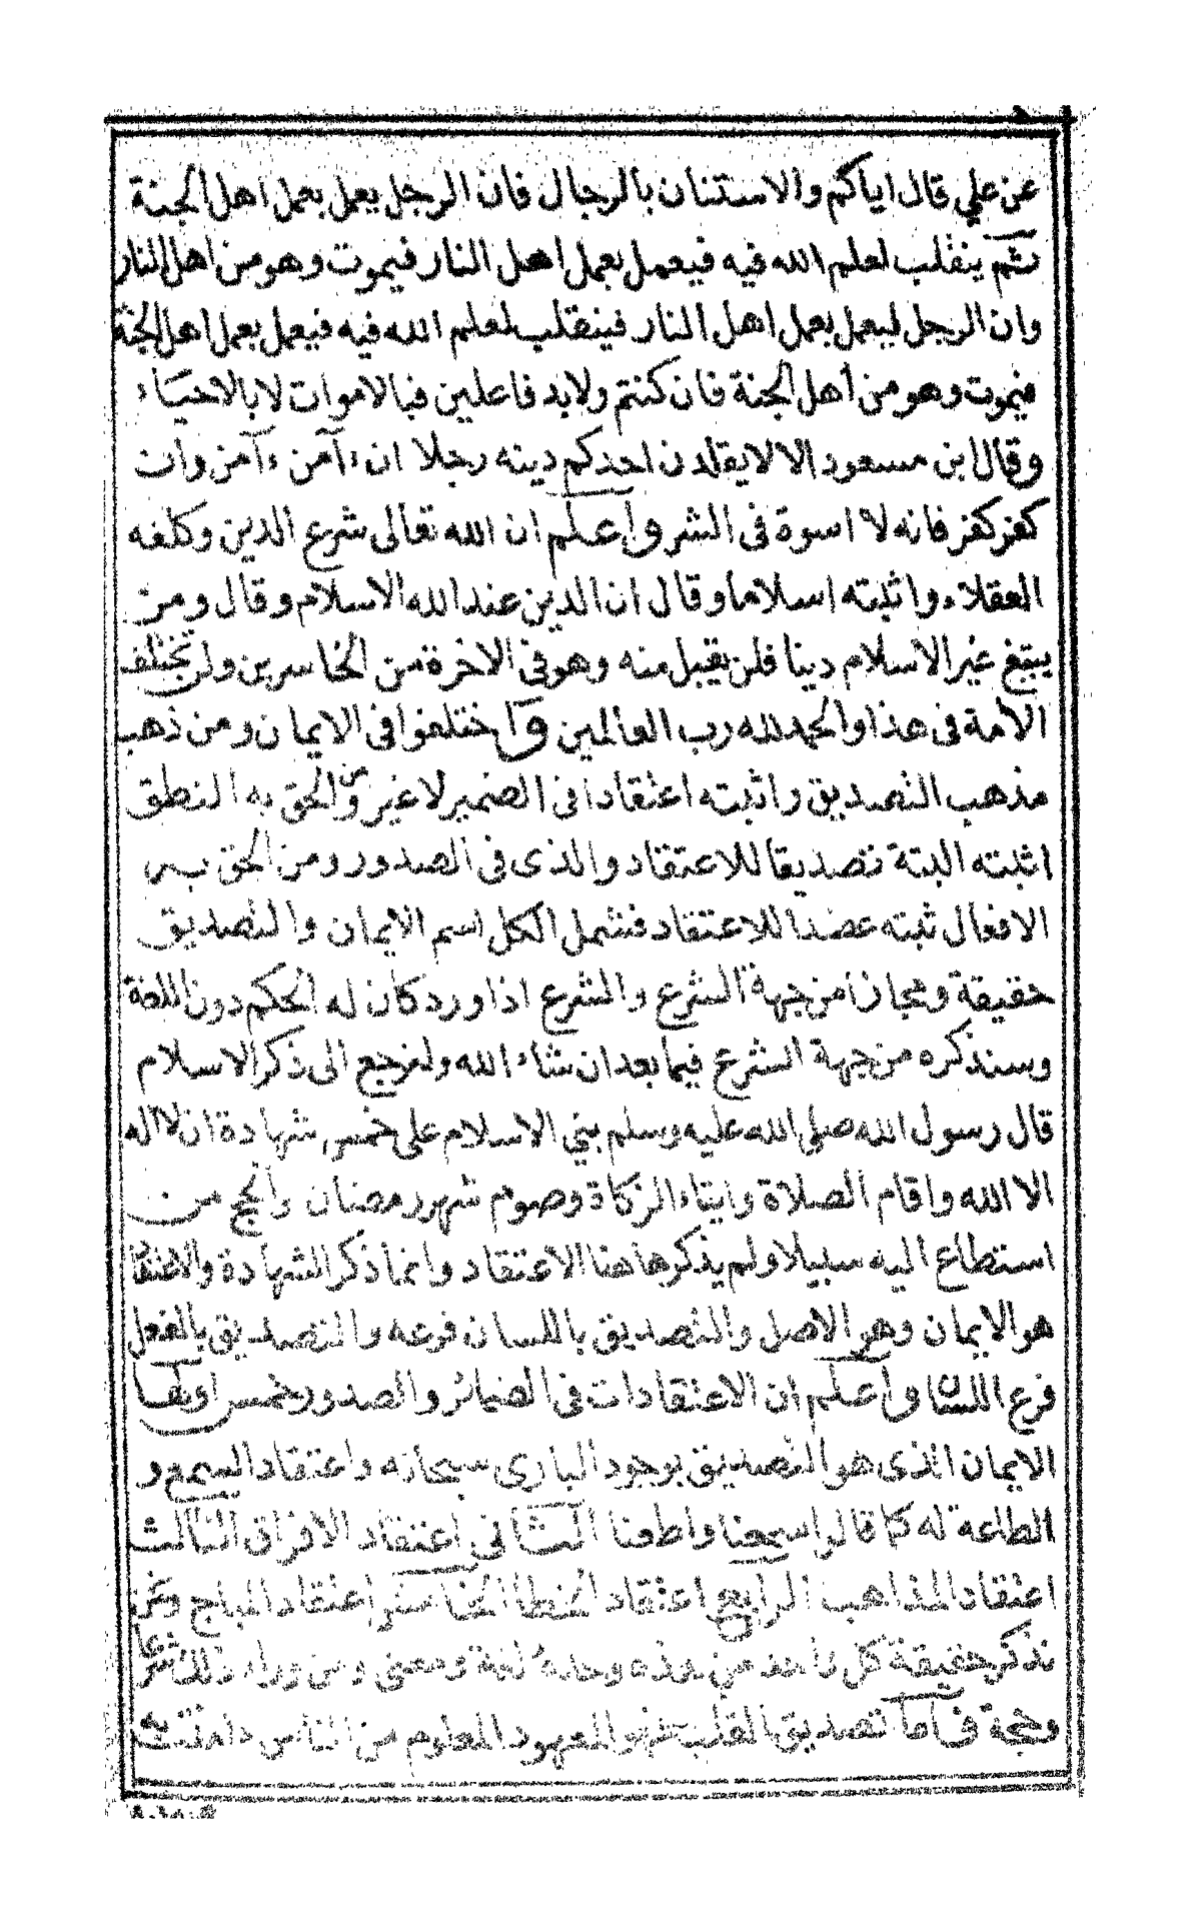 عن علي قال اياكم والاستنان بالرجال فان الرجل يعمل بعمل اهل الجنة
ثم ينقلب لعلم الله فيه فيعمل بعمل اهل النار فيموت وهو من اهل النار
وان الرجل ليعمل بعمل اهل النار فينقلب لعلم الله فيه فيعمل بعمل اهل الجنة
فيموت وهو من أهل الجنة فان كنتم ولابد فاعلين فبالاموات لا بالاحياء
وقال ابن مسعود الا لا يقلدن احدكم دينه رجلا ان ءآمن ءآمن وان
كفر كفر فانه لا اسوة فى الشر واعلم ان الله تعالى شرع الدين وكلفه
العقلاء واثبته اسلاما وقال ان الدين عند الله الاسلام وقال ومن
يبتغ غير الاسلام دينا فلن يقبل منه وهو في الاخرة من الخاسرين ولن تختلف
الأمة فى هذا والحمد لله رب العالمين واختلفوا في الايمان ومن ذهب
مذهب التصديق واثبته اعتقادا فى الضمير لا غير ومن الحق به النطق
اثبته البتة تصديقا للاعتقاد والذى فى الصدور ومن الحق به
الافعال ثبته عضدا للاعتقاد فشمل الكل اسم الايمان والتصديق
حقيقة ومجازا من جهة الشرع والشرع اذا ورد كان له الحكم دون اللغة
وسنذكره من جهة الشرع فيما بعد ان شاء الله ولنرجع الى ذكر الاسلام
قال رسول الله صلى الله عليه وسلم بني الاسلام على خمس شهادة ان لا اله
الا الله واقام الصلاة وايتاء الزكاة وصوم شهر رمضان والحج من
استطاع اليه سبيلا ولم يذكر هاهنا الاعتقاد وانما ذكر الشهادة والاعتقاد
هو الايمان وهو الاصل والتصديق باللسان فرعه والتصديق بالفعل
فرع اللسان واعلم ان الاعتقادات فى الضمائر والصدور خمس اولها
الايمان الذى هو التصديق بوجود البارى سبحانه واعتقاد السمع و
الطاعة له كما قالوا سمعنا واطعنا الثاني اعتقاد الافراق الثالث
اعتقاد المذاهب الرابع اعتقاد الخطا الخامس اعتقاد المباح ونحن
نذكر حقيقة كل واحد من هذه وحده لغة ومعنى ومن وراء ذلك شرعا
وحجة فاما تصديق القلب فهو المعهود المعلوم من الناس